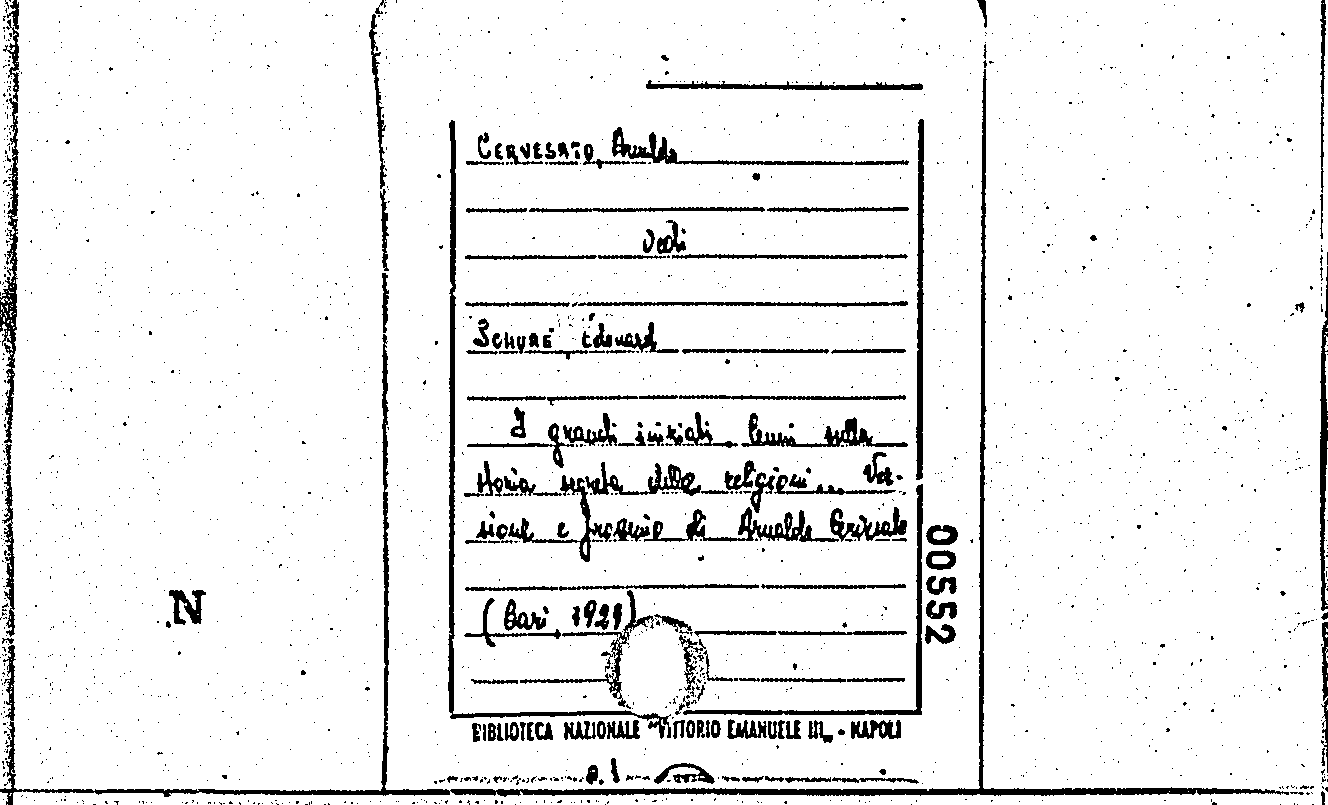 CERVESATO, Arnaldo
Vedi
SCHURÉ Edouard
I grandi iniziati. Cenni sulla
storia segreta delle religioni... Ver-
sione e proemio di Arnaldo Cervesato
(Bari, 1921)
00552
N
BIBLIOTECA NAZIONALE "VITTORIO EMANUELE III" - NAPOLI